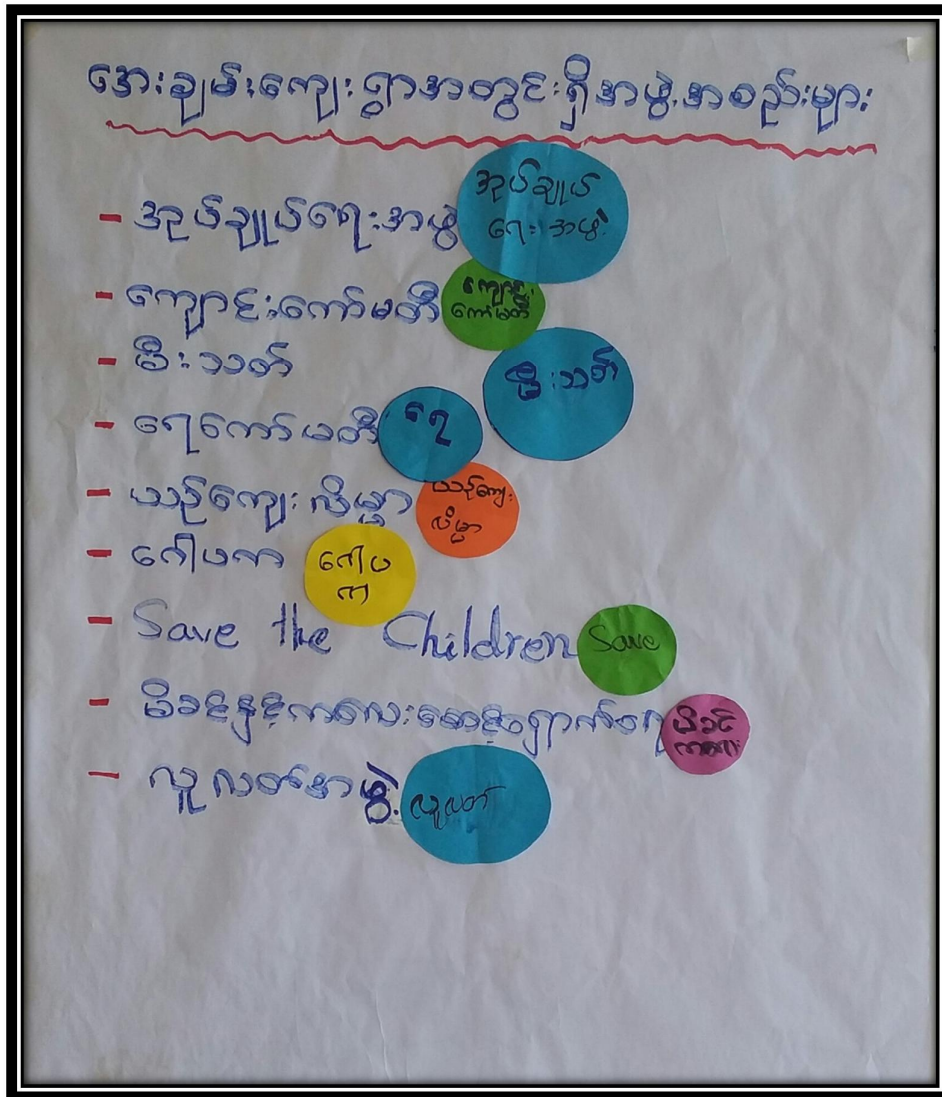 အေးချမ်းကျေးရွာအတွင်းရှိအဖွဲ့အစည်းများ
- အုပ်ချုပ်ရေးအဖွဲ့ အုပ်ချုပ်
ရေးအဖွဲ့
- ကျောင်းကော်မတီ ကျောင်း
ကော်မတီ
- မီးသတ် မီးသတ်
- ရေကော်မတီ ရေ
- ယဉ်ကျေးလိမ္မာ ယဉ်ကျေး
လိမ္မာ
- ဂေါပက ဂေါပ
က
- Save the Children Save
- မိခင်နှင့်ကလေးစောင့်ရှောက်ရေး မိခင်
ကလေး
- လူလတ်အဖွဲ့ လူလတ်